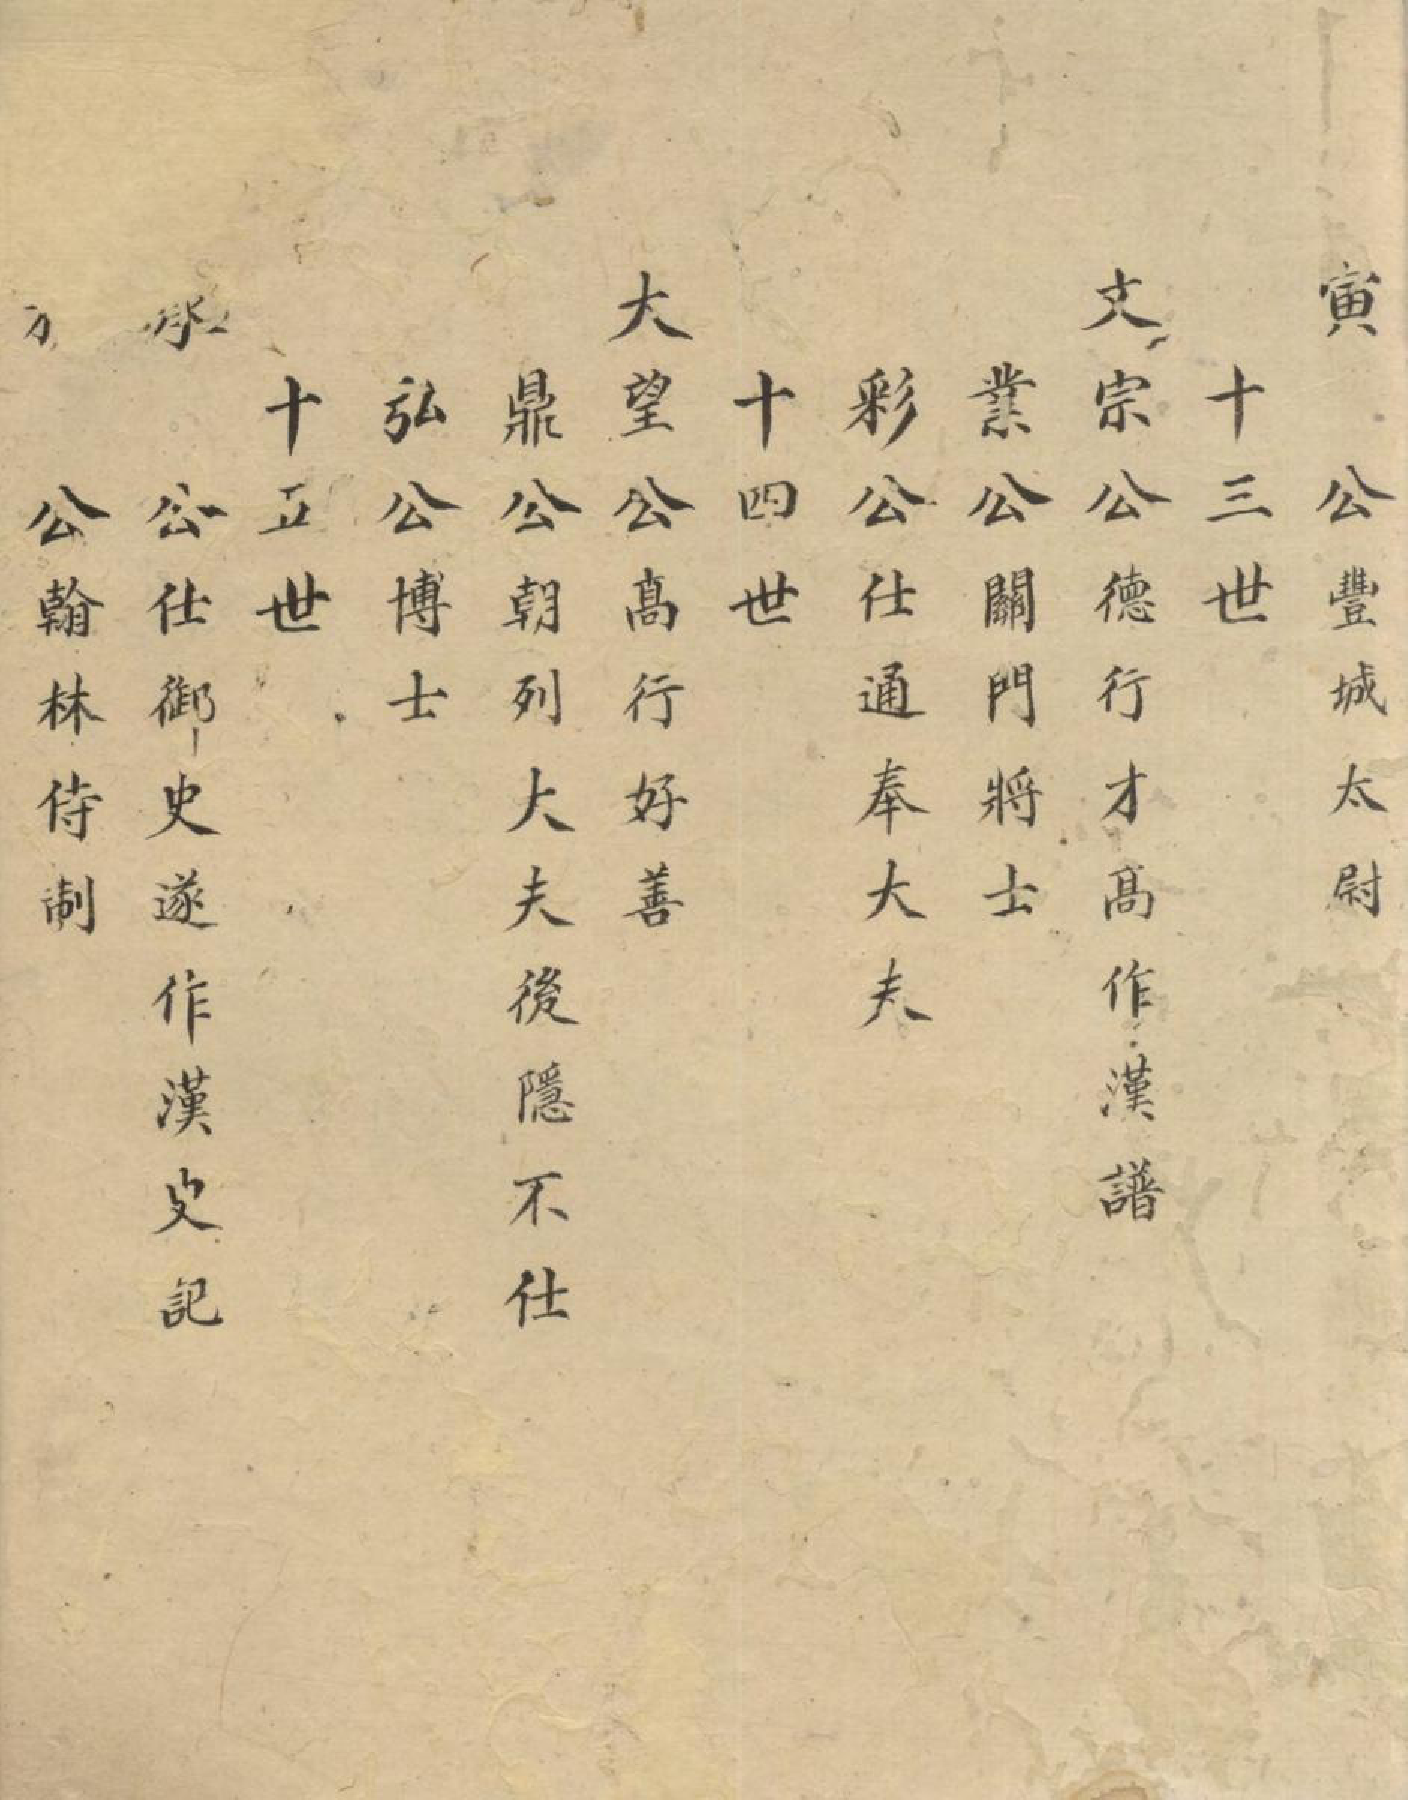 寅公豐城太尉
十三世
文宗公德行才高作漢譜
業公關門將士
彩公仕通奉大夫
十四世
大望公高行好善
鼎公朝列大夫後隱不仕
弘公博士
十五世
公仕御史遂作漢史記
公翰林侍制